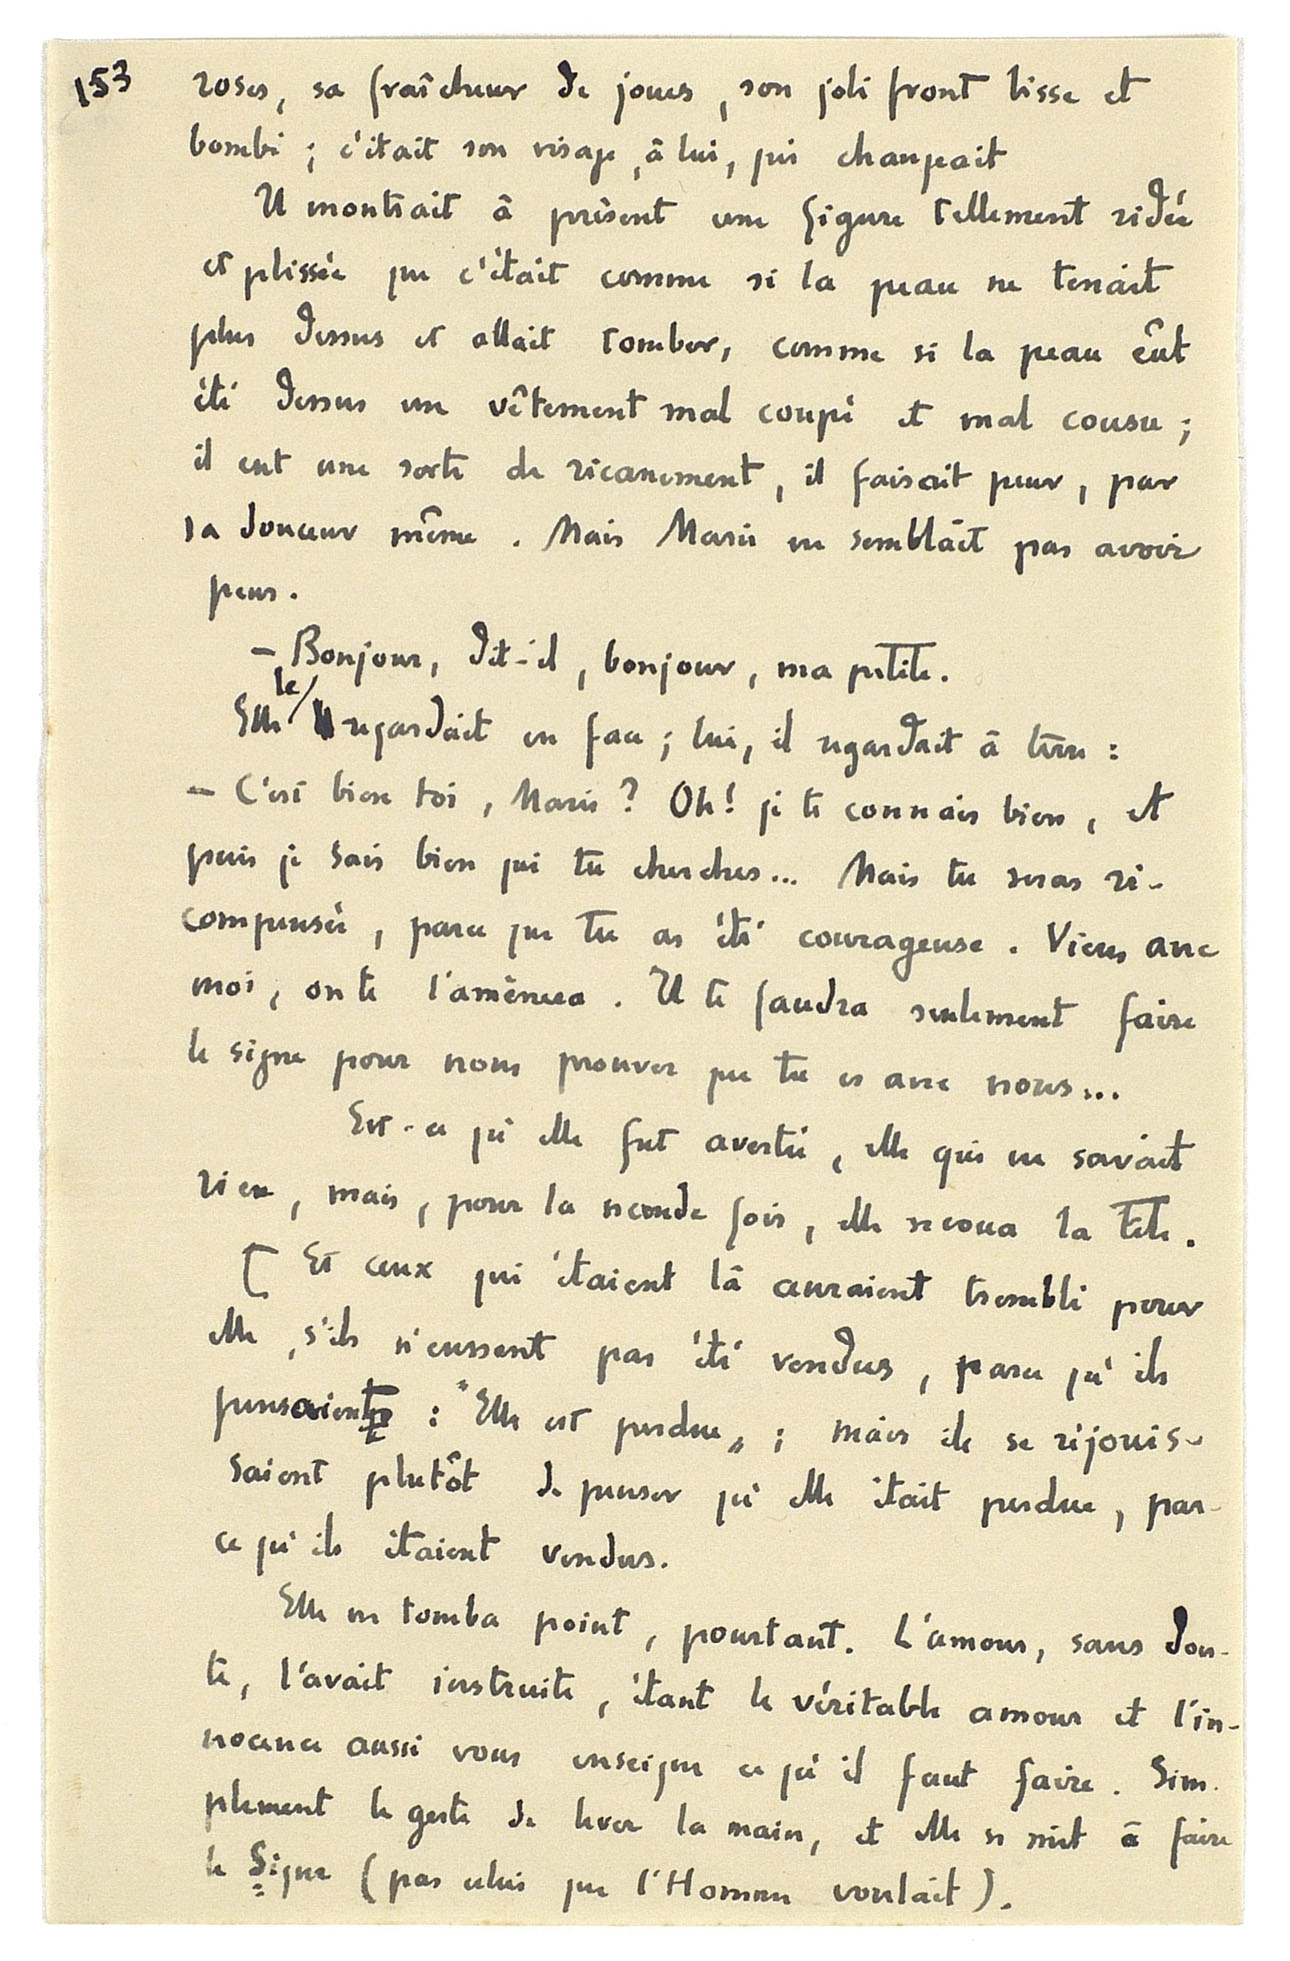 153
roses, sa fraîcheur de joues, son joli front lisse et
bombé ; c'était son visage, à lui, qui changeait
Il montrait à présent une figure tellement ridée
et plissée que c'était comme si la peau ne tenait
plus dessus et allait tomber, comme si la peau eût
été dessus un vêtement mal coupé et mal cousu ;
il eut une sorte de ricanement, il faisait peur, par
sa douceur même. Mais Marie ne semblait pas avoir
peur.
— Bonjour, dit-il, bonjour, ma petite.
Elle le regardait en face ; lui, il regardait à terre :
— C'est bien toi, Marie ? Oh! je te connais bien, et
puis je sais bien qui tu cherches... Mais tu seras ré-
compensée, parce que tu as été courageuse. Viens avec
moi, on te l'amènera. Il te faudra seulement faire
le signe pour nous prouver que tu es avec nous...
Est-ce qu'elle fut avertie, elle qui ne savait
rien, mais, pour la seconde fois, elle secoua la tête.
[ Et ceux qui étaient là auraient tremblé pour
elle, s'ils n'eussent pas été vendus, parce qu'ils
pensaient : "Elle est perdue„ ; mais ils se réjouis-
saient plutôt de penser qu'elle était perdue, par-
ce qu'ils étaient vendus.
Elle ne tomba point, pourtant. L'amour, sans dou-
te, l'avait instruite, étant le véritable amour et l'in-
nocence aussi vous enseigne ce qu'il faut faire. Sim-
plement le geste de lever la main, et elle se mit à faire
le Signe (pas celui que l'Homme voulait).